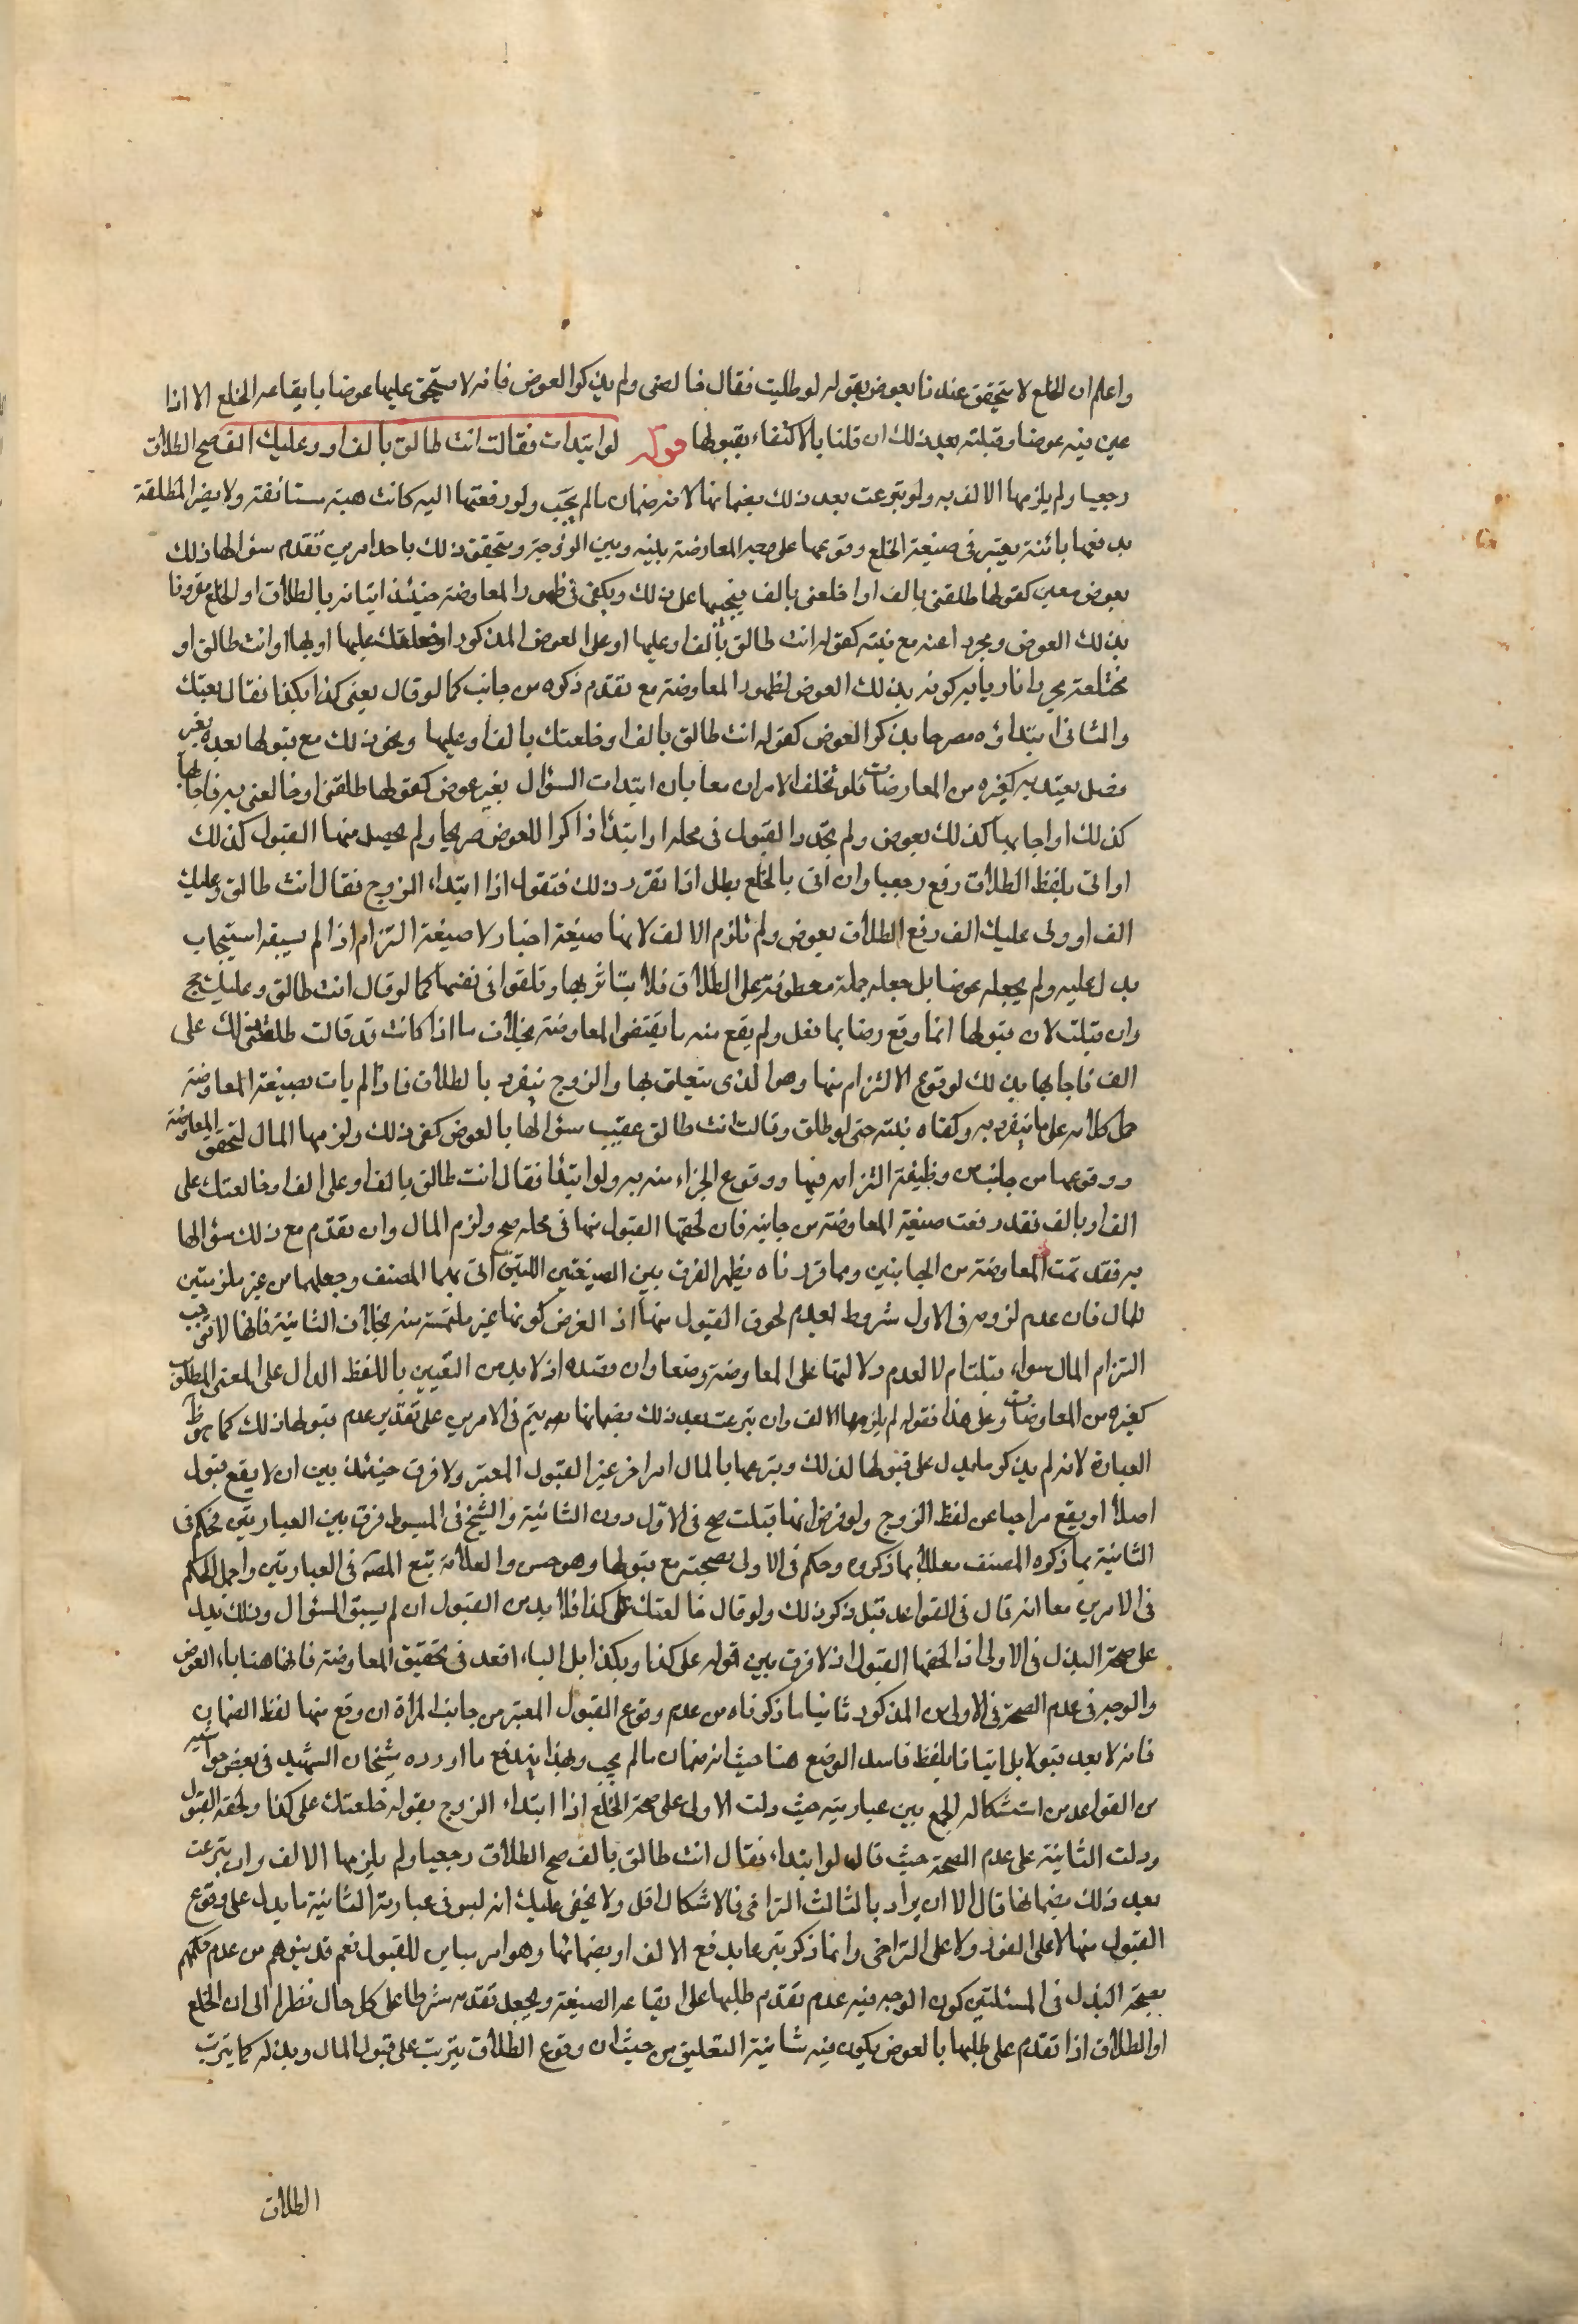 واعلم ان الخلع لا يتحقق عندنا بعوض بقوله لو طلبت فقال خالعنى ولم يذكرا العوض فانه لا يستحق عليها عوضا بايقاعه الخلع الا اذا
عين فيه عوضا وقبلته بعد ذلك ان قلنا بالاكتفاء بقبولها قوله لو ابتدات فقالت انت طالق بالف او وعليك الف صح الطلاق
رجعيا ولم يلزمها الالف به ولو تبرعت بعد ذلك بضمانها لانه ضمان ما لم يجب ولو دفعتها اليه كانت هبة مستانفة ولا يصير المطلقة
بدفعها بائنة يعتبر فى صيغة الخلع وقوعها على وجه المعاوضة بينه وبين الزوجة ويتحقق ذلك باحد امرين تقدم سؤالها ذلك
بعوض معين كقولها طلقنى بالف او اخلعنى بالف فيجيبها على ذلك ويكفى فى ظهور المعاوضة حينئذ اتيانه بالطلاق او الخلع مقرونا
بذلك العوض ومجردا عنه مع نيته كقوله انت طالق بالف او عليها او على العوض المذكور او خلعتك عليها او بها او انت طالق او
مختلعة مجردا ناويا به كونه بذلك العوض لظهور المعاوضة مع تقدم ذكره من جانب كما لو قال بعنى كذا بكذا فقال بعتك
والثانى ابتداؤه مصرحا بذكر العوض كقوله انت طالق بالف او خلعتك بالف او عليها ونحو ذلك مع قبولها بعده بغير
فصل يعتد به كغيره من المعاوضات فلو تخلف الامران معا بان ابتدات السؤال بغير عوض كقولها طلقنى او خالعنى به فاجابها
كذلك او اجابها كذلك بعوض ولم يتجدد القبول فى محله او ابتدأ ذاكرا للعوض صريحا ولم يحصل منها القبول كذلك
او اتى بلفظ الطلاق وقع رجعيا وان اتى بالخلع بطل اذا تقرر ذلك فنقول اذا ابتداء الزوج فقال انت طالق وعليك
الف او ولى عليك الف وقع الطلاق بعوض ولم تلزم الالف لانها صيغة اخبار لا صيغة التزام اذ لم يسبقه استيجاب
يدل عليه ولم يجعله عوضا بل جعله جملة معطوفة على الطلاق فلا يتاثر بها وتلغوا فى نفسها كما لو قال انت طالق وعليك حج
وان قبلت لان قبولها انما وقع رضا بما فعل ولم يقع منه ما يقتضى المعاوضة بخلاف ما اذا كانت قد قالت طلقنى ولك على
الف فاجابها بذلك لوقوع الالتزام منها وهو الذى يتعلق بها والزوج ينفرد بالطلاق فاذا لم يات بصيغة المعاوضة
حمل كلامه على ما ينفرد به وكفاه نيته حتى لو طلق وقالت انت طالق عقيب سؤالها بالعوض كفى ذلك ولزمها المال لتحقق المعاوضة
ووقوعها من جانب من وظيفته التزامه فيها ووقوع الجزاء منه به ولو ابتدأ فقال انت طالق بالف او على الف او خالعتك على
الف او بالف فقد وقعت صيغة المعاوضة من جانبه فان لحقها القبول منها فى محله صح ولزم المال وان تقدم مع ذلك سؤالها
به فقد تمت المعاوضة من الجانبين وبما قررناه يظهر الفرق بين الصيغتين اللتين اتى بهما المصنف وجعلهما من غير ملزمتين
للمال فان عدم لزومه فى الاول مشروط بعدم لحوق القبول منها اذ الغرض كونها غير ملتمسة منه بخلاف الثانية فانها لا توجب
التزام المال سواء قبلت ام لا لعدم دلالتها على المعاوضة وضعا وان قصده اذ لا بد من التعيين باللفظ الدال على المعنى المطلوب
كغيره من المعاوضات وعلى هذا فقوله لم يلزمها الالف وان تبرعت بعد ذلك بضمانها يتم فى الامرين على تقدير عدم قبولها ذلك كما هو ظ
العبارة لانه لم يذكر ما يدل على قبولها لذلك وتبرعها بالمال امر اخر غير القبول المعتبر ولا فرق حينئذ بين ان لا يقع قبول
اصلا او يقع متراخيا عن لفظ الزوج ولو فرض انها قبلت صح فى الاول دون الثانية والشيخ فى المبسوط فرق بين العبارتين فحكم فى
الثانية بما ذكره المصنف معللا بما ذكره وحكم فى الاولى بصحته مع قبولها وهو حسن والعلامة تبع المصه فى العبارتين واجمل الحكم
فى الامرين معا انه قال فى القواعد قبل ذكر ذلك ولو قال خالعتك على كذا فلا بد من القبول ان لم يسبق السؤال وذلك يدل
على صحة البذل فى الاولى اذ لحقها القبول اذ لا فرق بين قوله على كذا وبكذا بل الباء اقعد فى تحقيق المعاوضة فانها هنا باء العوض
والوجه فى عدم الصحة فى الاولى من المذكور ثانيا ما ذكرناه من عدم وقوع القبول المعتبر من جانب المرأة ان وقع منها لفظ الضمان
فانه لا يعد قبولا بل اتيانا بلفظ فاسد الوضع هنا حيث انه ضمان ما لم يجب وبهذا يندفع ما اورده شيخنا الشهيد فى بعض حواشيه
من القواعد من استشكاله الجمع بين عبارتيه حيث دلت الاولى على صحة الخلع اذا ابتداء الزوج بقوله خلعتك على كذا ولحقه القبول
ودلت الثانية على عدم الصحة حيث قال لو ابتداء فقال انت طالق بالف صح الطلاق رجعيا ولم يلزمها الالف وان تبرعت
بعد ذلك بضمانها قال الا ان يراد بالثالث التراخى فالاشكال اقل ولا يخفى عليك انه ليس فى عبارته الثانية ما يدل على وقوع
القبول منها لا على الفور ولا على التراخى وانما ذكر تبرعا بدفع الالف او بضمانها وهو امر مباين للقبول نعم قد يتوهم من عدم حكمهم
بصحة البذل فى المسئلتين كون الوجه فيه عدم تقدم طلبها على ايقاعه الصيغة ويجعل تقدمه شرطا على كل حال نظرا الى ان الخلع
او الطلاق اذا تقدم على طلبها بالعوض يكون فيه شائبة التعليق من حيث ان وقوع الطلاق يترتب على قبول المال وبذله كما يترتب
الطلاق